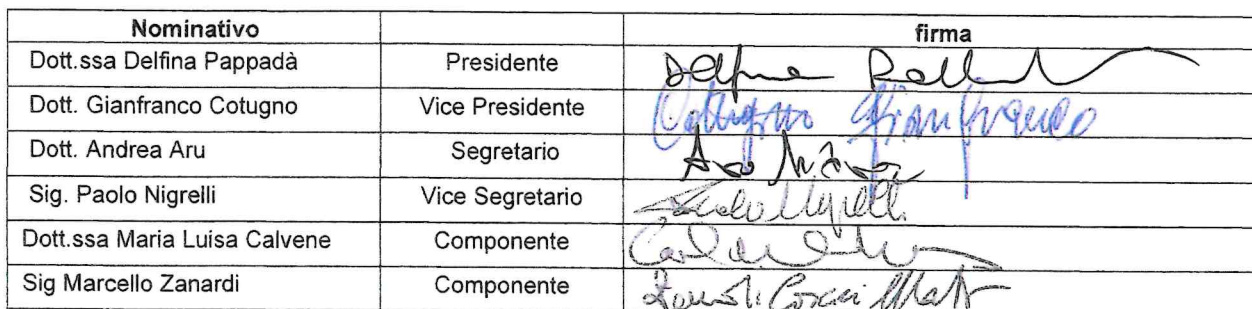 Nominativo firma
Dott.ssa Delfina Pappadà Presidente
Dott. Gianfranco Cotugno Vice Presidente Cotugno Gianfranco
Dott. Andrea Aru Segretario
Sig. Paolo Nigrelli Vice Segretario Paolo Nigrelli
Dott.ssa Maria Luisa Calvene Componente
Sig Marcello Zanardi Componente